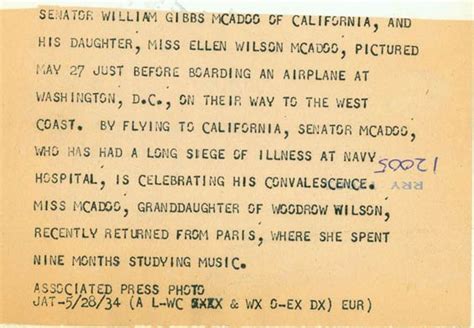 SENATOR WILLIAM GIBBS MCADOO OF CALIFORNIA, AND
HIS DAUGHTER, MISS ELLEN WILSON MCADOO, PICTURED
MAY 27 JUST BEFORE BOARDING AN AIRPLANE AT
WASHINGTON, D.C., ON THEIR WAY TO THE WEST
COAST. BY FLYING TO CALIFORNIA, SENATOR MCADOO,
WHO HAS HAD A LONG SIEGE OF ILLNESS AT NAVY
HOSPITAL, IS CELEBRATING HIS CONVALESCENCE.
MISS MCADOO, GRANDDAUGHTER OF WOODROW WILSON,
RECENTLY RETURNED FROM PARIS, WHERE SHE SPENT
NINE MONTHS STUDYING MUSIC.
ASSOCIATED PRESS PHOTO
JAT-5/28/34 (A L-WC & WX O-EX DX) EUR)
RRY
12005